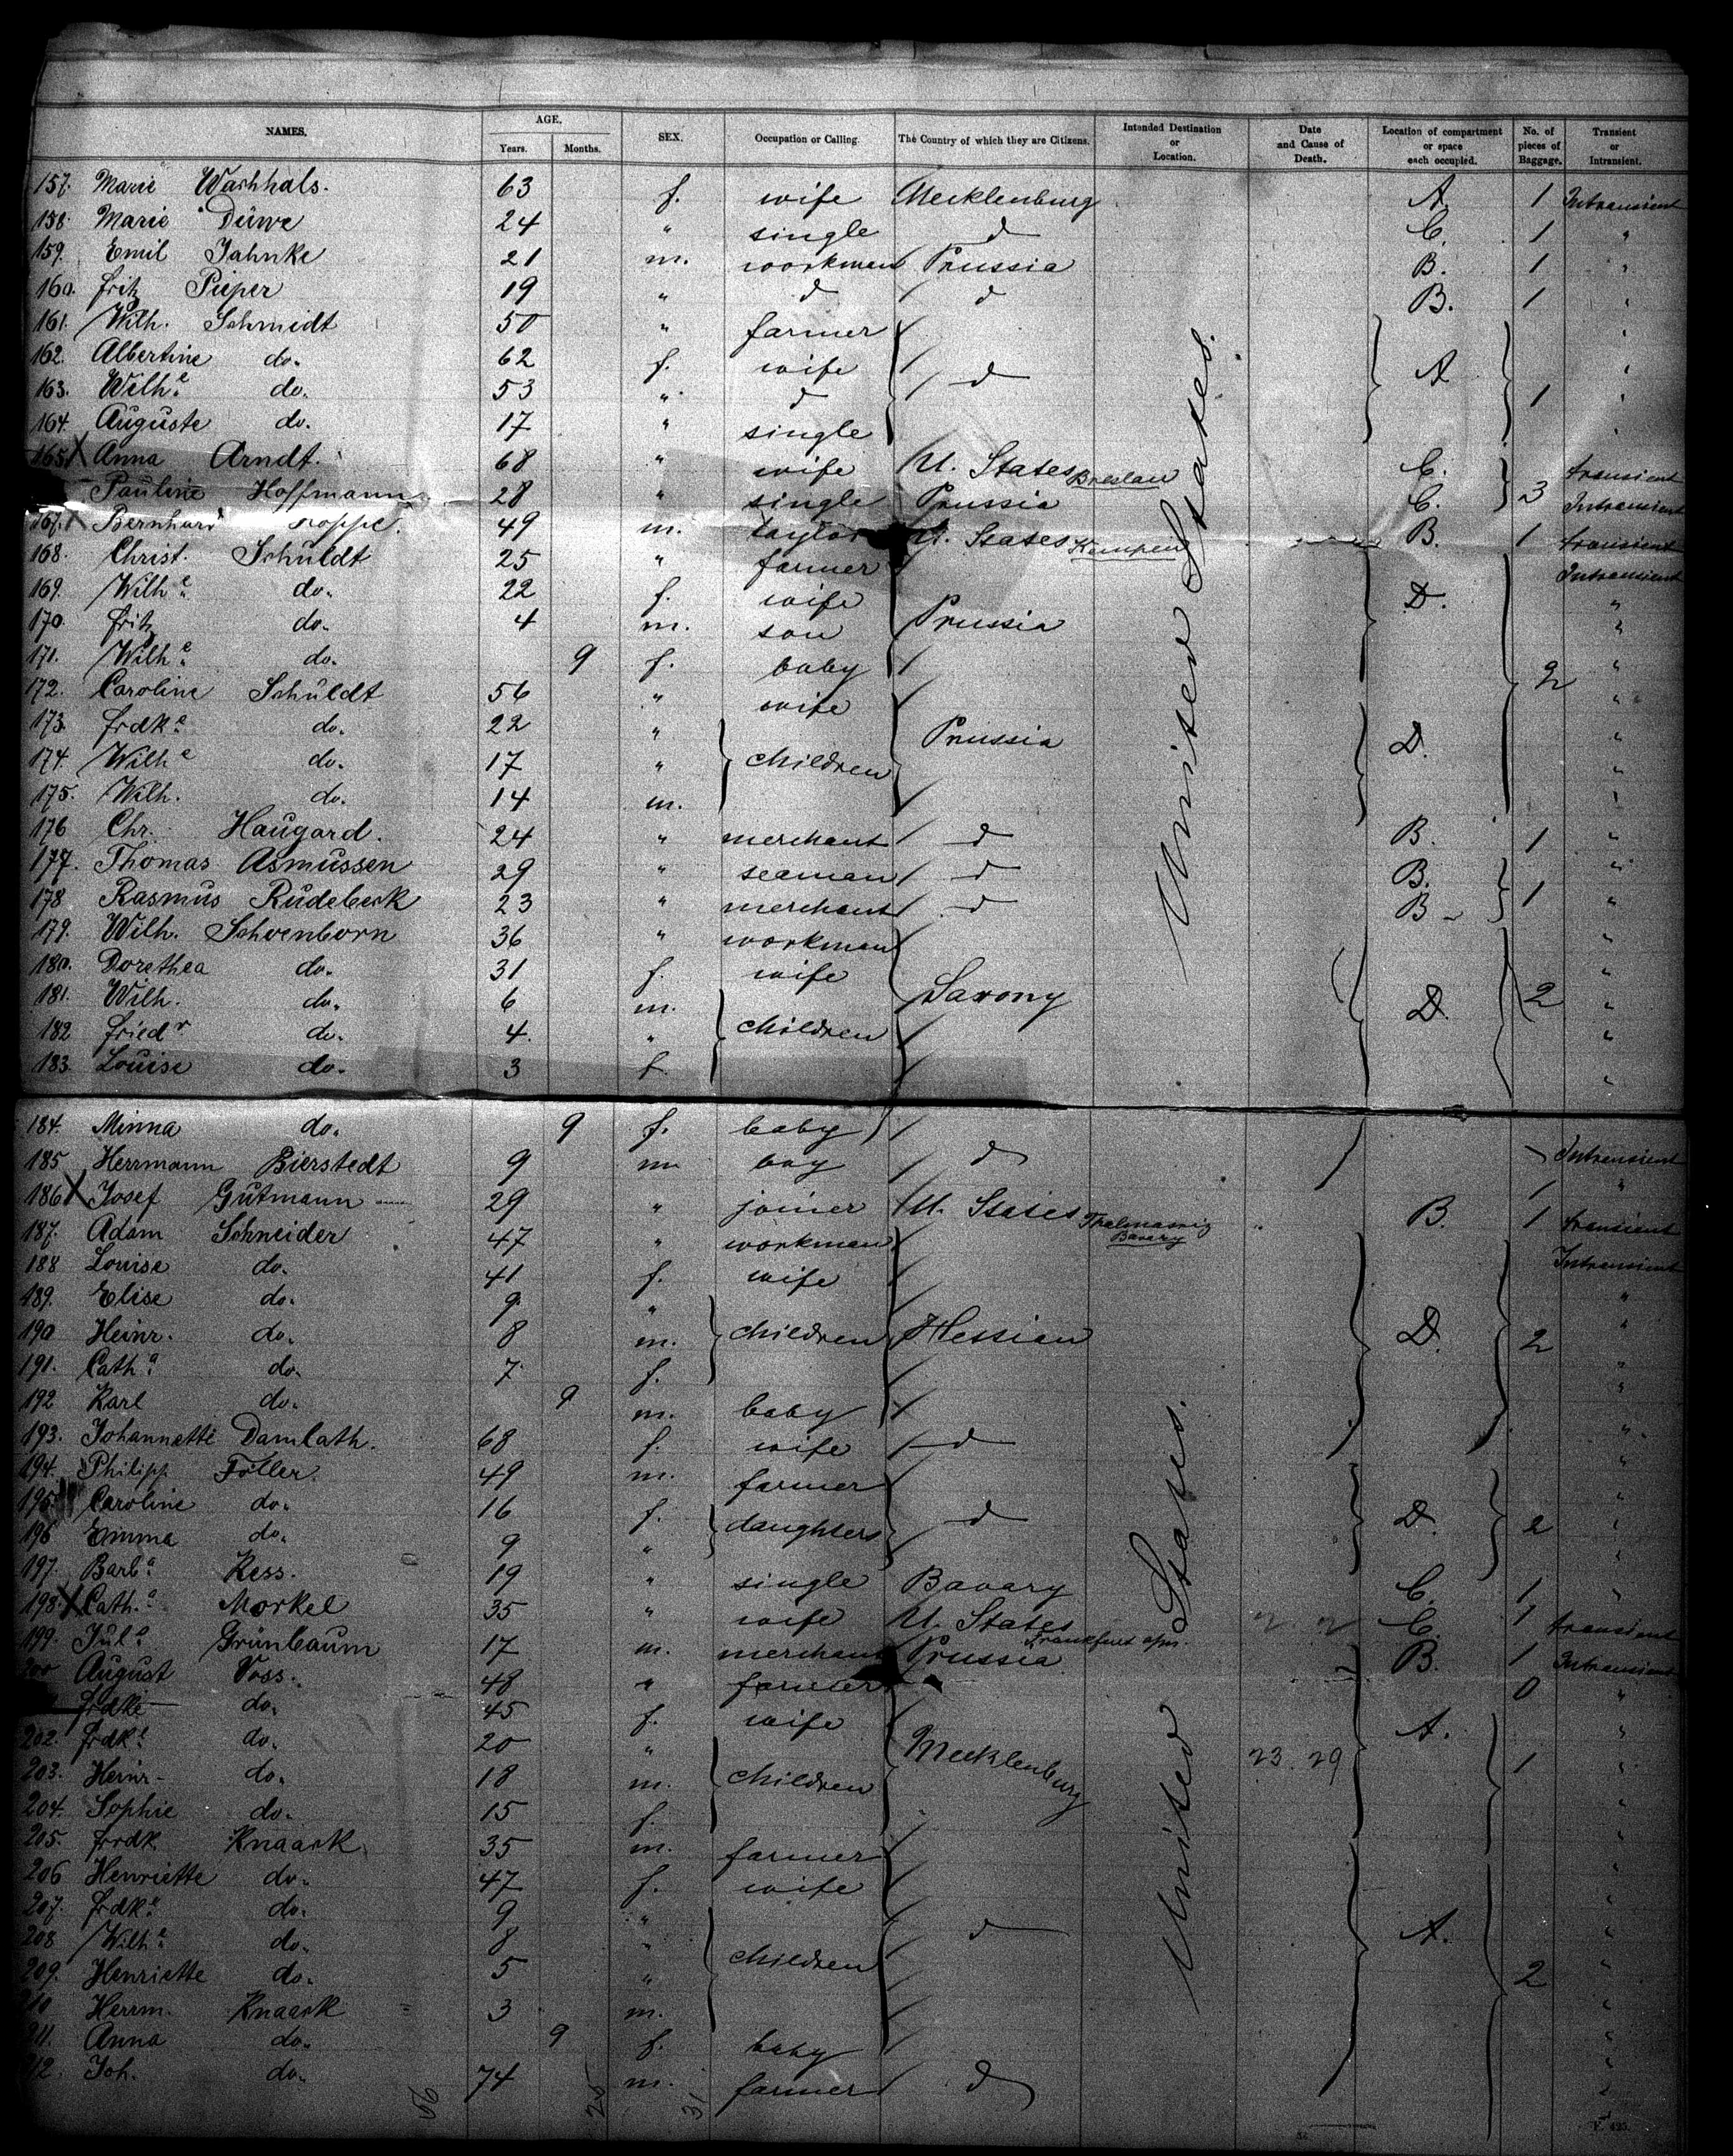 NAMES. AGE. SEX. Occupation or Calling. The Country of which they are Citizens. Intended Destination or Location. Date and Cause of Death. Location of compartment or space each occupied. No. of pieces of Baggage. Transient or Intransient.
Years. Months.
157. Marie Warhhals. 63 f. wife Mecklenburg A 1 Intransient
158. Marie Düwe 24 " single d C. 1 "
159. Emil Jahnke 21 m. workman Prussia B. 1 "
160. Fritz Pieper 19 " d d B. 1 "
161. Wilh. Schmidt 50 " farmer "
162. Albertine do. 62 f. wife d A "
163. Wilhe. do. 53 " d 1 "
164. Auguste do. 17 " single "
165. X Anna Arndt. 68 " wife U. States Breslau C. 3 transient
Pauline Hoffmann 28 " single Prussia C. Intransient
167. X Bernhard 49 m. taylor U. States Kempen B. 1 transient
168. Christ. Schüldt 25 " farmer Intransient
169. Wilhe. do. 22 f. wife Prussia D. "
170. Fritz do. 4 m. son "
171. Wilhe. do. 9 f. baby 2 "
172. Caroline Schüldt 56 " wife "
173. Frdke. do. 22 " children Prussia D. "
174. Wilhe do. 17 " "
175. Wilh. do. 14 m. "
176 Chr. Haugard. 24 " merchant d B. 1 "
177. Thomas Asmussen 29 " seaman d B. 1 "
178 Rasmus Rüdebeck 23 " merchant d B "
179. Wilh. Schoenborn 36 " workman "
180. Dorethea do. 31 f. wife Saxony D. 2 "
181. Wilh. do. 6 m. children "
182 Friedr do. 4. " "
183. Louise do. 3 f. "
United States.
184. Minna do. 9 f. baby
185 Herrmann Bierstedt 9 m boy d Intransient
186 X Josef Gutmann 29 " joiner U. States Thalmassig Bavary B. 1 transient
187. Adam Schneider 47 " workman
188 Louise do. 41 f. wife Intransient
189. Elise do. 9 " children Hessian D. 2 "
190 Heinr. do. 8 m. "
191. Catha. do. 7 f. "
192 Karl do. 9 m. baby "
193. Johannette Damlath. 68 f. wife d "
194. Philipp Foller. 49 m. farmer "
195. Caroline do. 16 f. daughters d D. 2 "
196 Emma do. 9 " "
197. Barba. Kess. 19 " single Bavary C. 1 "
198. X Catha. Morkel 35 " wife U. States C. 1 transient
199. Jule. Grünbaum 17 m. merchant Prussia Frankfurt a/m. B. 1 Intransient
200 August Voss. 48 " farmer 0 "
Frdke do. 45 f. wife Mecklenburg A. 1 "
202. Frdke. do. 20 " children 23. 29 "
203. Heinr. do. 18 m. "
204. Sophie do. 15 f. "
205. Frdk. Knaark 35 m. farmer "
206 Henriette do. 47 f. wife "
207. Frdke. do. 9 " children d A. 2 "
208 Wilhe. do. 8 " "
209. Henriette do. 5 " "
210 Herrm. Knaark 3 m. "
211. Anna do. 9 f. baby "
212. Joh. do. 74 m. farmer d "
United States.
31